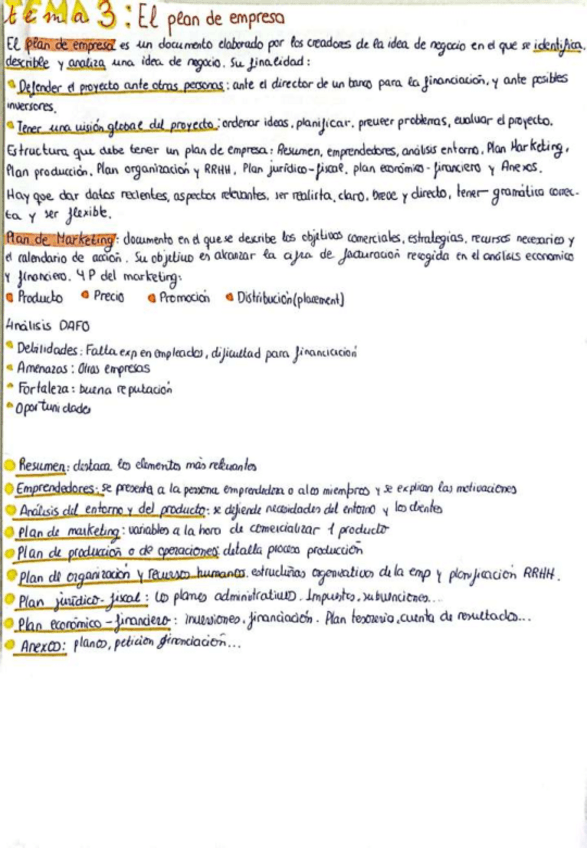 tema 3: El plan de empresa
El plan de empresa es un documento elaborado por los creadores de la idea de negocio en el que se identifica,
describe y analiza una idea de negocio. Su finalidad:
Defender el proyecto ante otras personas: ante el director de un banco para la financiación, y ante posibles
inversores.
Tener una visión global del proyecto: ordenar ideas, planificar, preveer problemas, evaluar el proyecto.
Estructura que debe tener un plan de empresa: Resumen, emprendedores, análisis entorno, Plan Marketing,
Plan producción, Plan organización y RRHH, Plan jurídico-fiscal, plan económico-financiero y Anexos.
Hay que dar datos recientes, aspectos relevantes, ser realista, claro, breve y directo, tener gramática correc-
ta y ser flexible.
Plan de Marketing: documento en el que se describe los objetivos comerciales, estrategias, recursos necesarios y
el calendario de acción. Su objetivo es alcanzar la cifra de facturación recogida en el análisis economico
y financiero. 4P del marketing:
Producto Precio Promoción Distribución (placement)
Análisis DAFO
Debilidades: Falta exp en empleados, dificultad para financiación
Amenazas: Otras empresas
Fortaleza: buena reputación
Oportunidades
Resumen: destaca los elementos más relevantes
Emprendedores: se presenta a la persona emprendedora o a los miembros y se explican las motivaciones
Análisis del entorno y del producto: se defiende necesidades del entorno y los clientes
Plan de marketing: variables a la hora de comercializar 1 producto
Plan de producción o de operaciones: detalla proceso producción
Plan de organización y recursos humanos: estructuras organizativas de la emp y planificación RRHH.
Plan jurídico-fiscal: los planes administrativos. Impuestos, subvenciones...
Plan económico-financiero: inversiones, financiación. Plan tesorería, cuenta de resultados...
Anexos: planos, petición financiación...